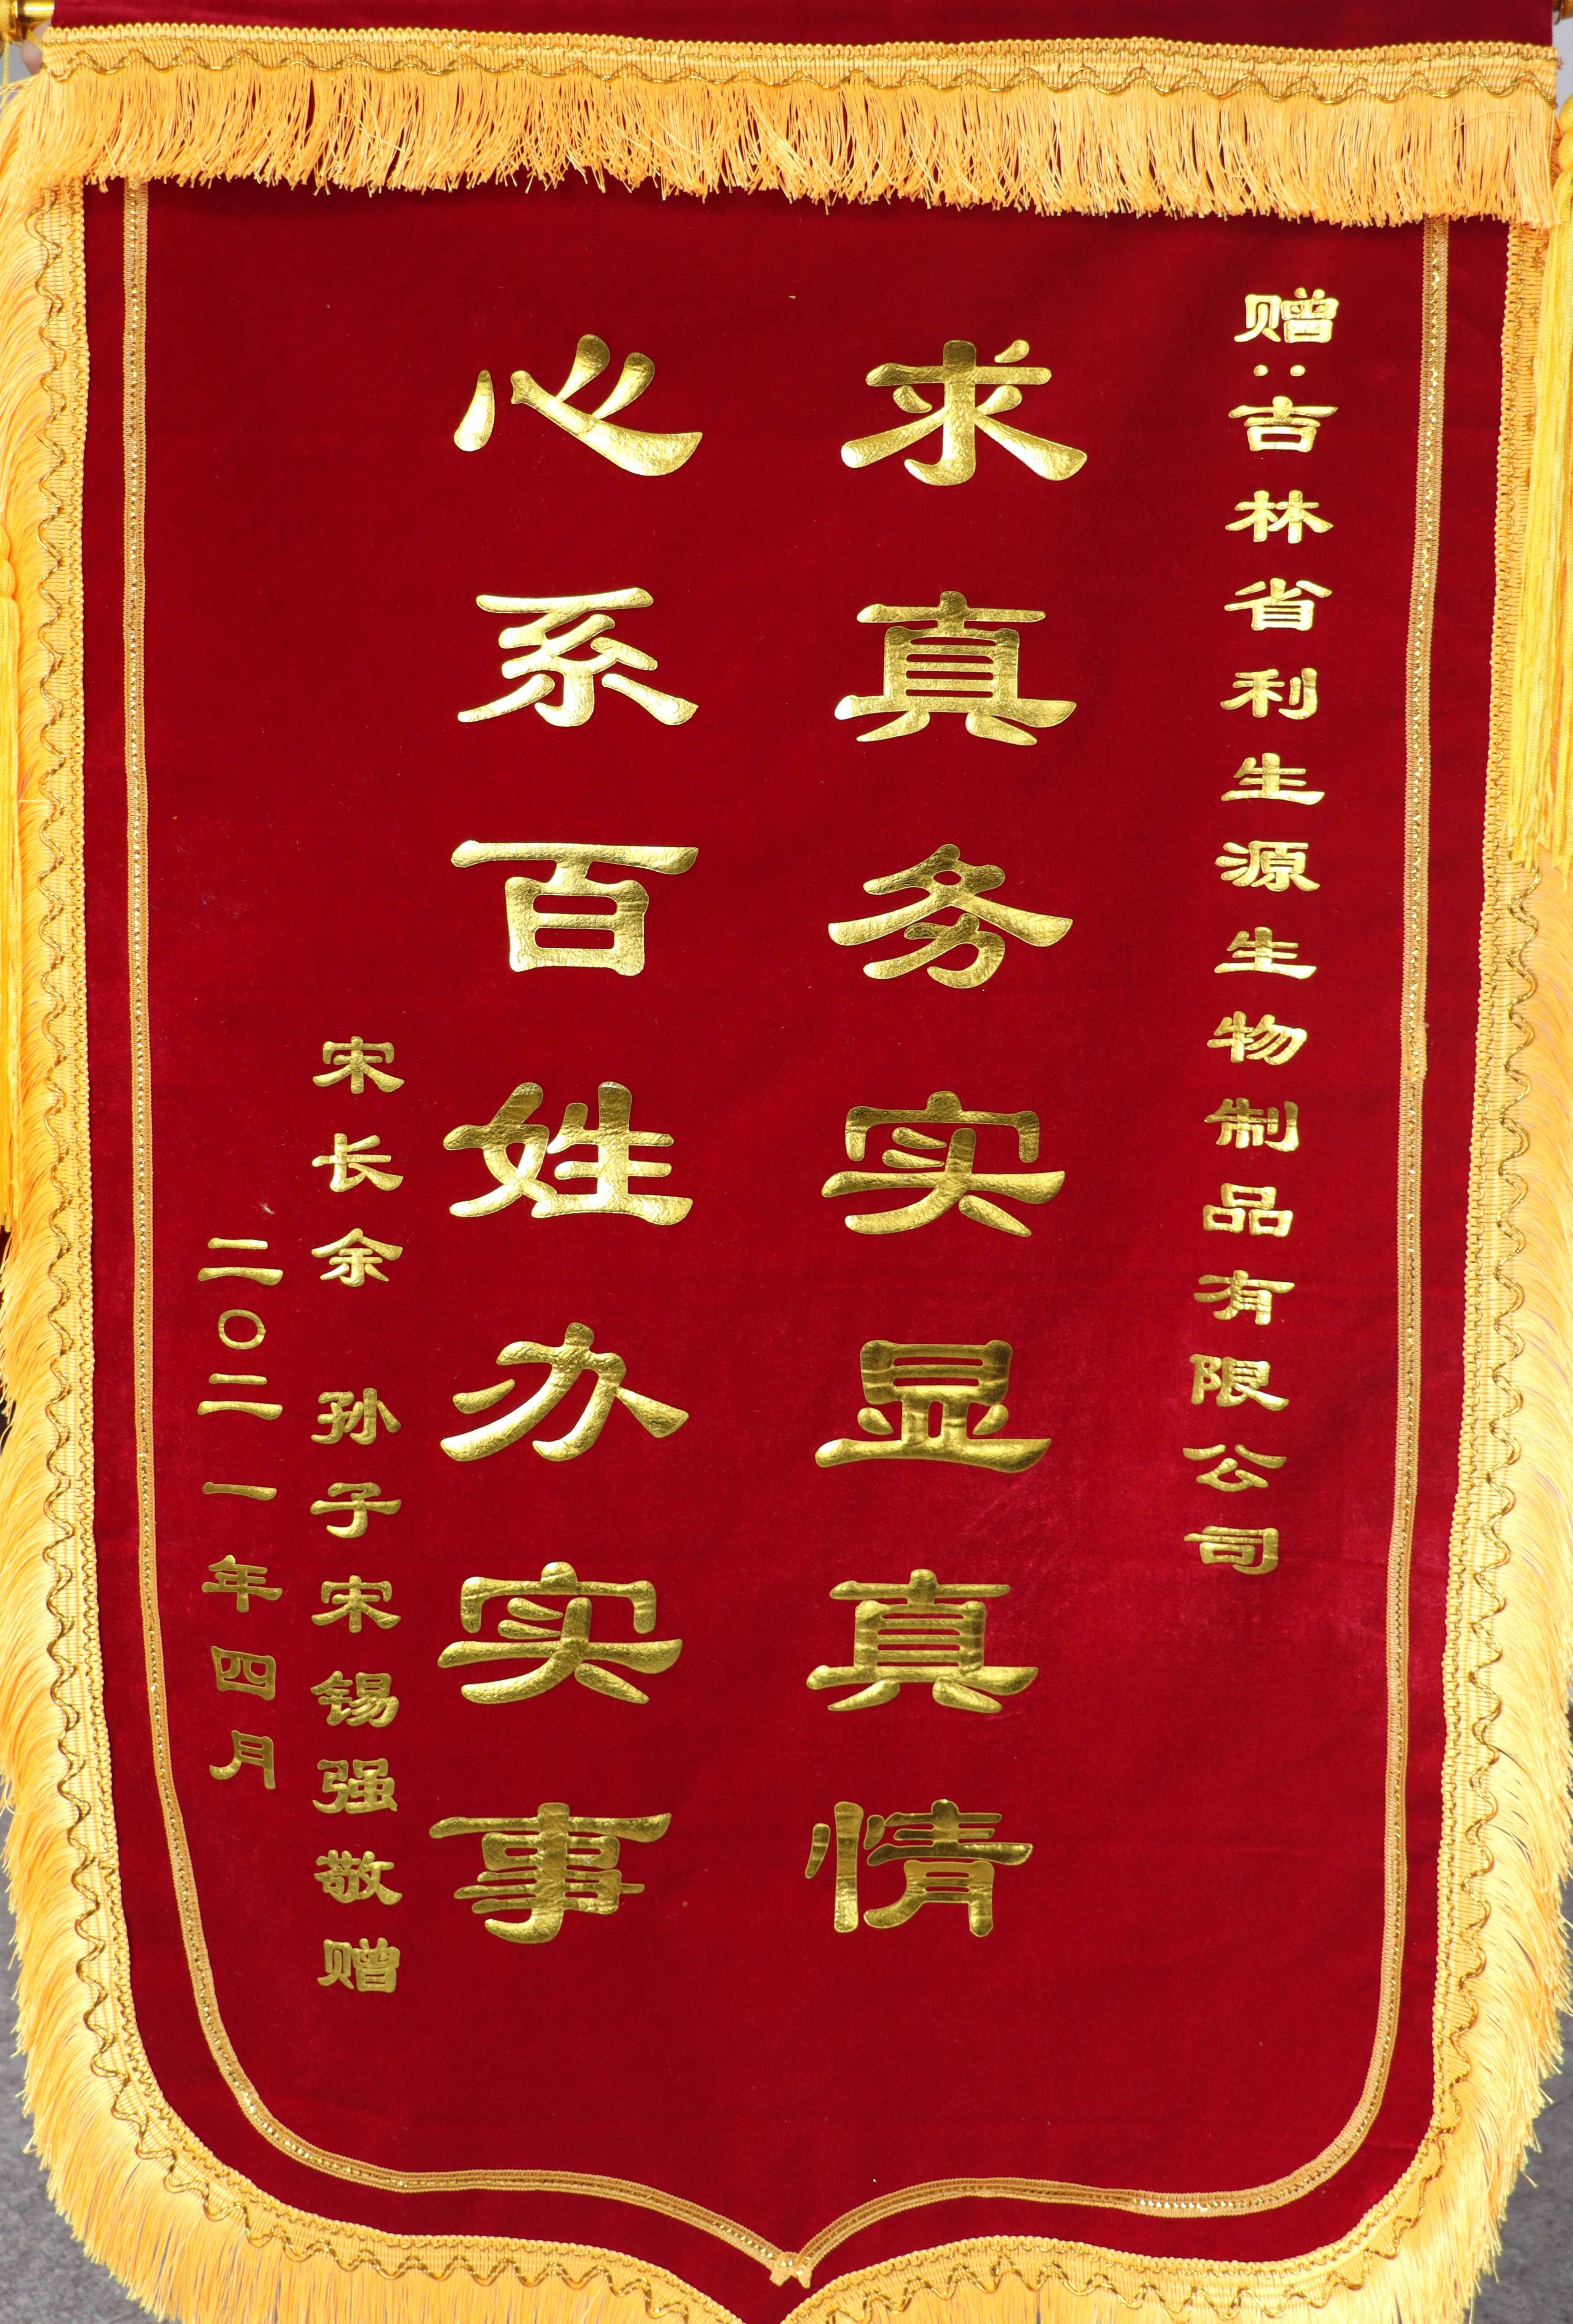 赠：吉林省利生源生物制品有限公司
求真务实显真情
心系百姓办实事
宋长余 孙子宋锡强敬赠
二〇二一年四月